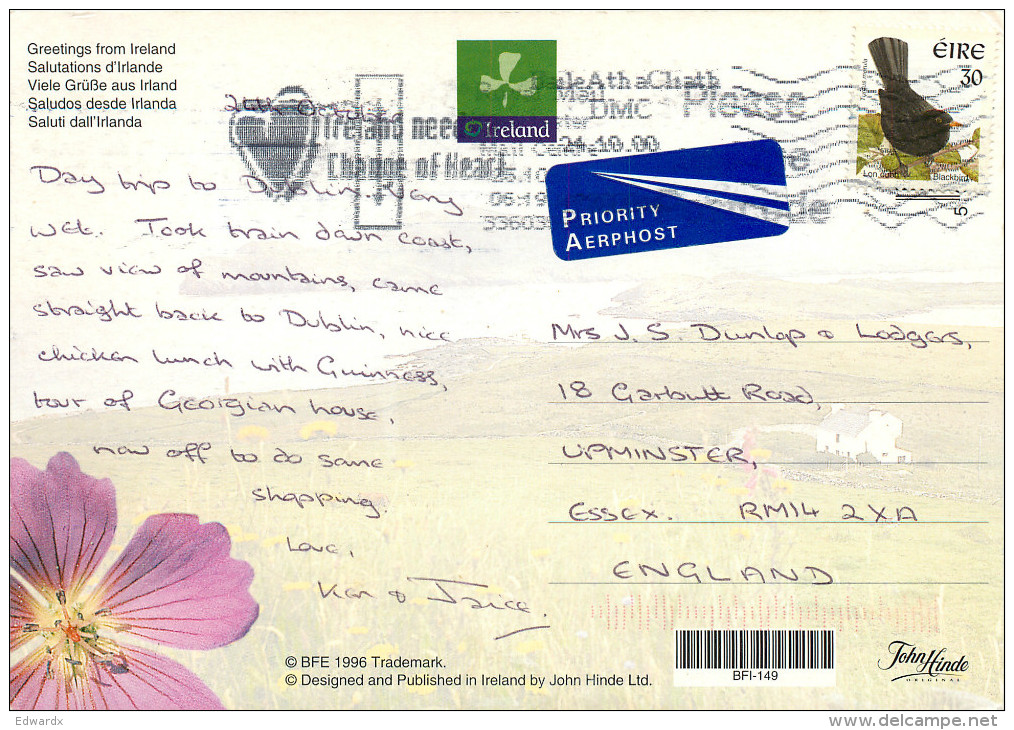 Greetings from Ireland
Salutations d'Irlande
Viele Grüße aus Irland
Saludos desde Irlanda
Saluti dall'Irlanda
Ireland
ÉIRE
30
Lon dubh Blackbird
Ireland need
Change of Heart
Baile Átha Cliath
DMC Please
PRIORITY
AERPHOST
October
Day trip to Dublin. Very
wet. Took train down coast,
saw view of mountains, came
straight back to Dublin, nice
chicken lunch with Guinness,
tour of Georgian house,
now off to do some
shopping.
Love,
&
Mrs J. S. Dunlop & Lodgers,
18 Garbutt Road,
UPMINSTER,
ESSEX. RM14 2XA
ENGLAND
© BFE 1996 Trademark.
© Designed and Published in Ireland by John Hinde Ltd.
BFI-149
John Hinde
ORIGINAL
Edwardx
delcampe.net